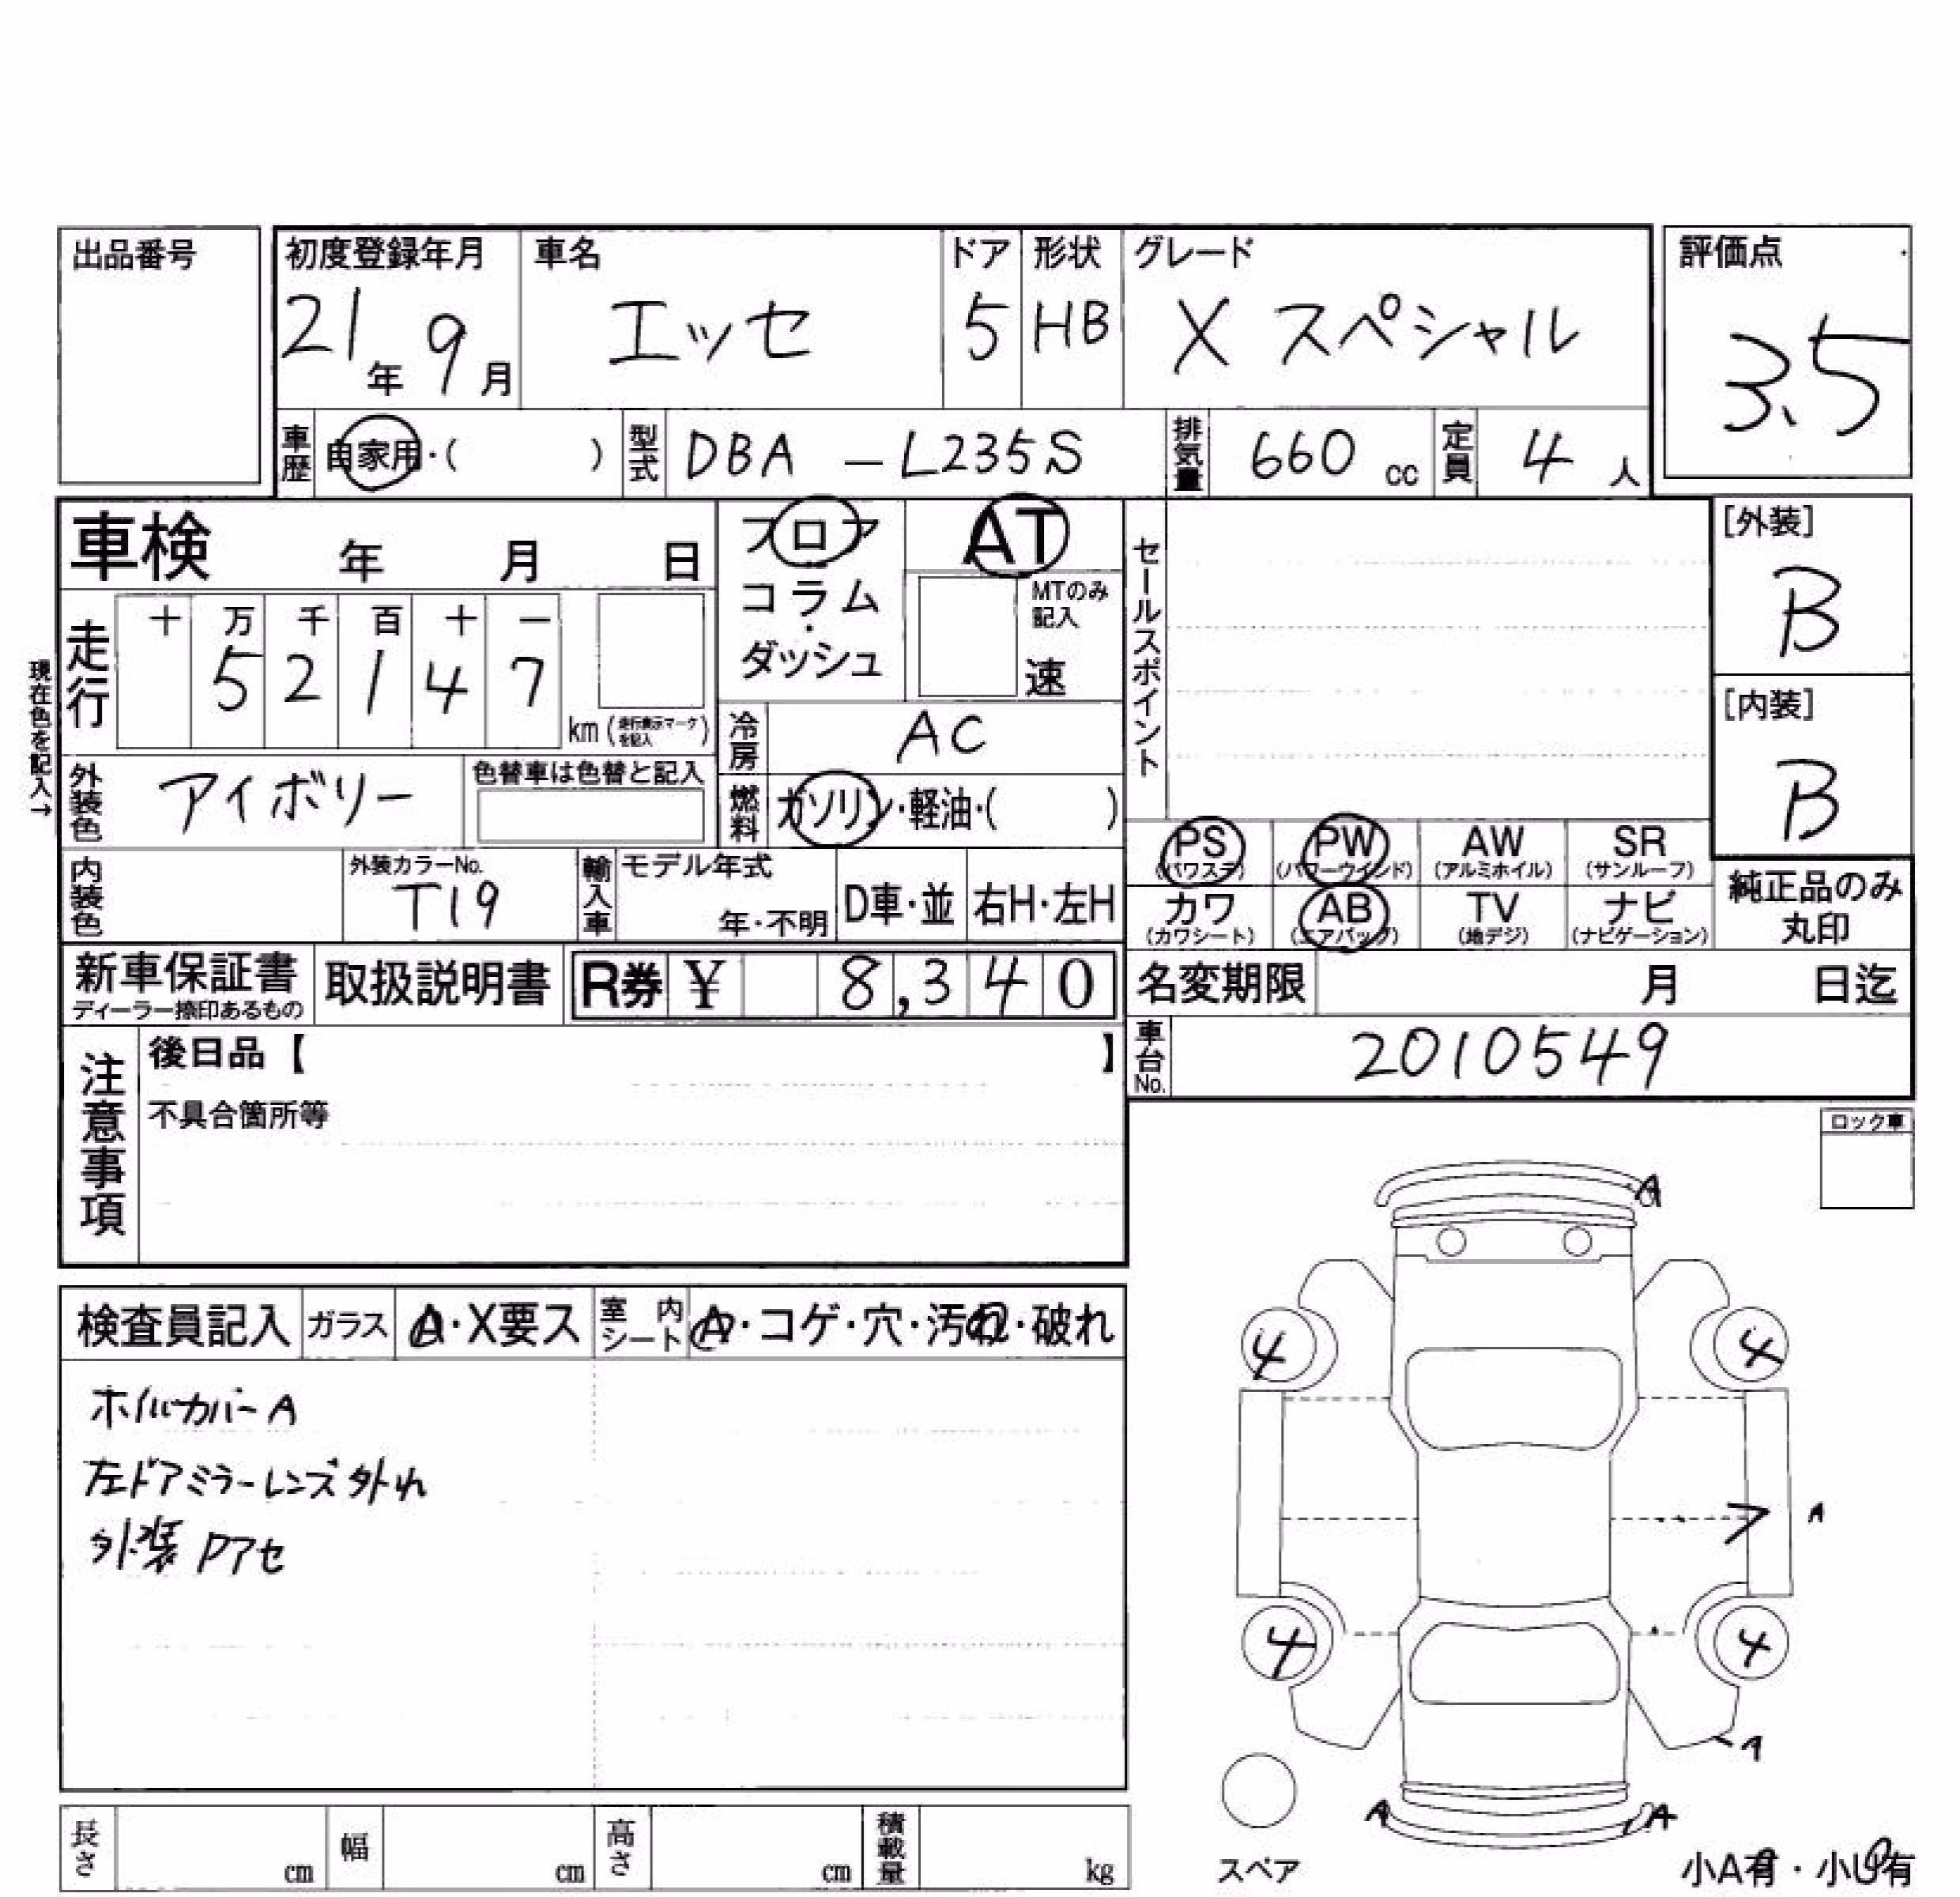 出品番号
初度登録年月 車名 ドア 形状 グレード 評価点
21年 9月 エッセ 5 HB X スペシャル 3.5
車歴 自家用・( ) 型式 DBA-L235S 排気量 660 cc 定員 4 人
車検 年 月 日
フロア AT
コラム・ダッシュ
MTのみ記入
速
セールスポイント
[外装]
B
[内装]
B
現在色を記入→
走行 十 万 千 百 十 一
5 2 1 4 7
km (走行表示マークを記入)
冷房 AC
外装色 アイボリー 色替車は色替と記入
燃料 ガソリン・軽油・( )
PS (パワステ) PW (パワーウインド) AW (アルミホイル) SR (サンルーフ)
カワ (カワシート) AB (エアバッグ) TV (地デジ) ナビ (ナビゲーション)
純正品のみ
丸印
内装色 外装カラーNo. T19 輸入車 モデル年式 年・不明 D車・並 右H・左H
新車保証書 ディーラー捺印あるもの 取扱説明書 R券 ¥ 8,340
名変期限 月 日迄
車台No. 2010549
注意事項
後日品【 】
不具合箇所等
ロック車
検査員記入 ガラス A・X要ス 室内シート A・コゲ・穴・汚れ・破れ
ホイルカバーA
左ドアミラーレンズ外れ
外装Pアセ
A
4 4
A
4 4
A
A A
スペア
小A有・小U有
長さ cm 幅 cm 高さ cm 積載量 kg